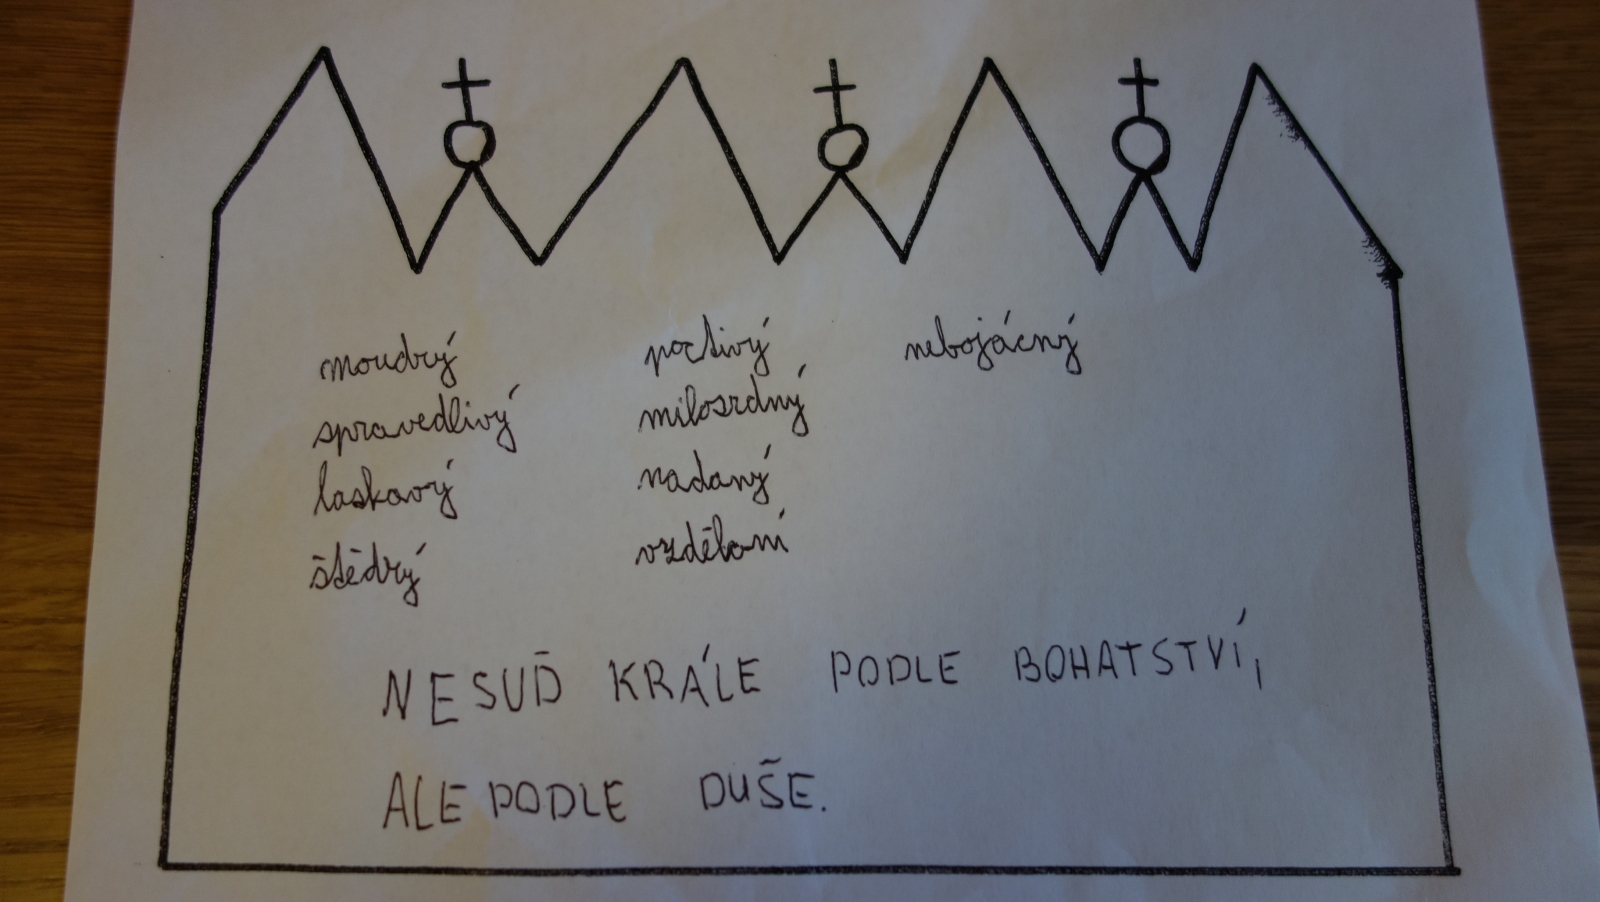 moudrý poctivý nebojácný
spravedlivý milosrdný
laskavý nadaný
štědrý vzdělaní
NESUĎ KRÁLE PODLE BOHATSTVÍ,
ALE PODLE DUŠE.